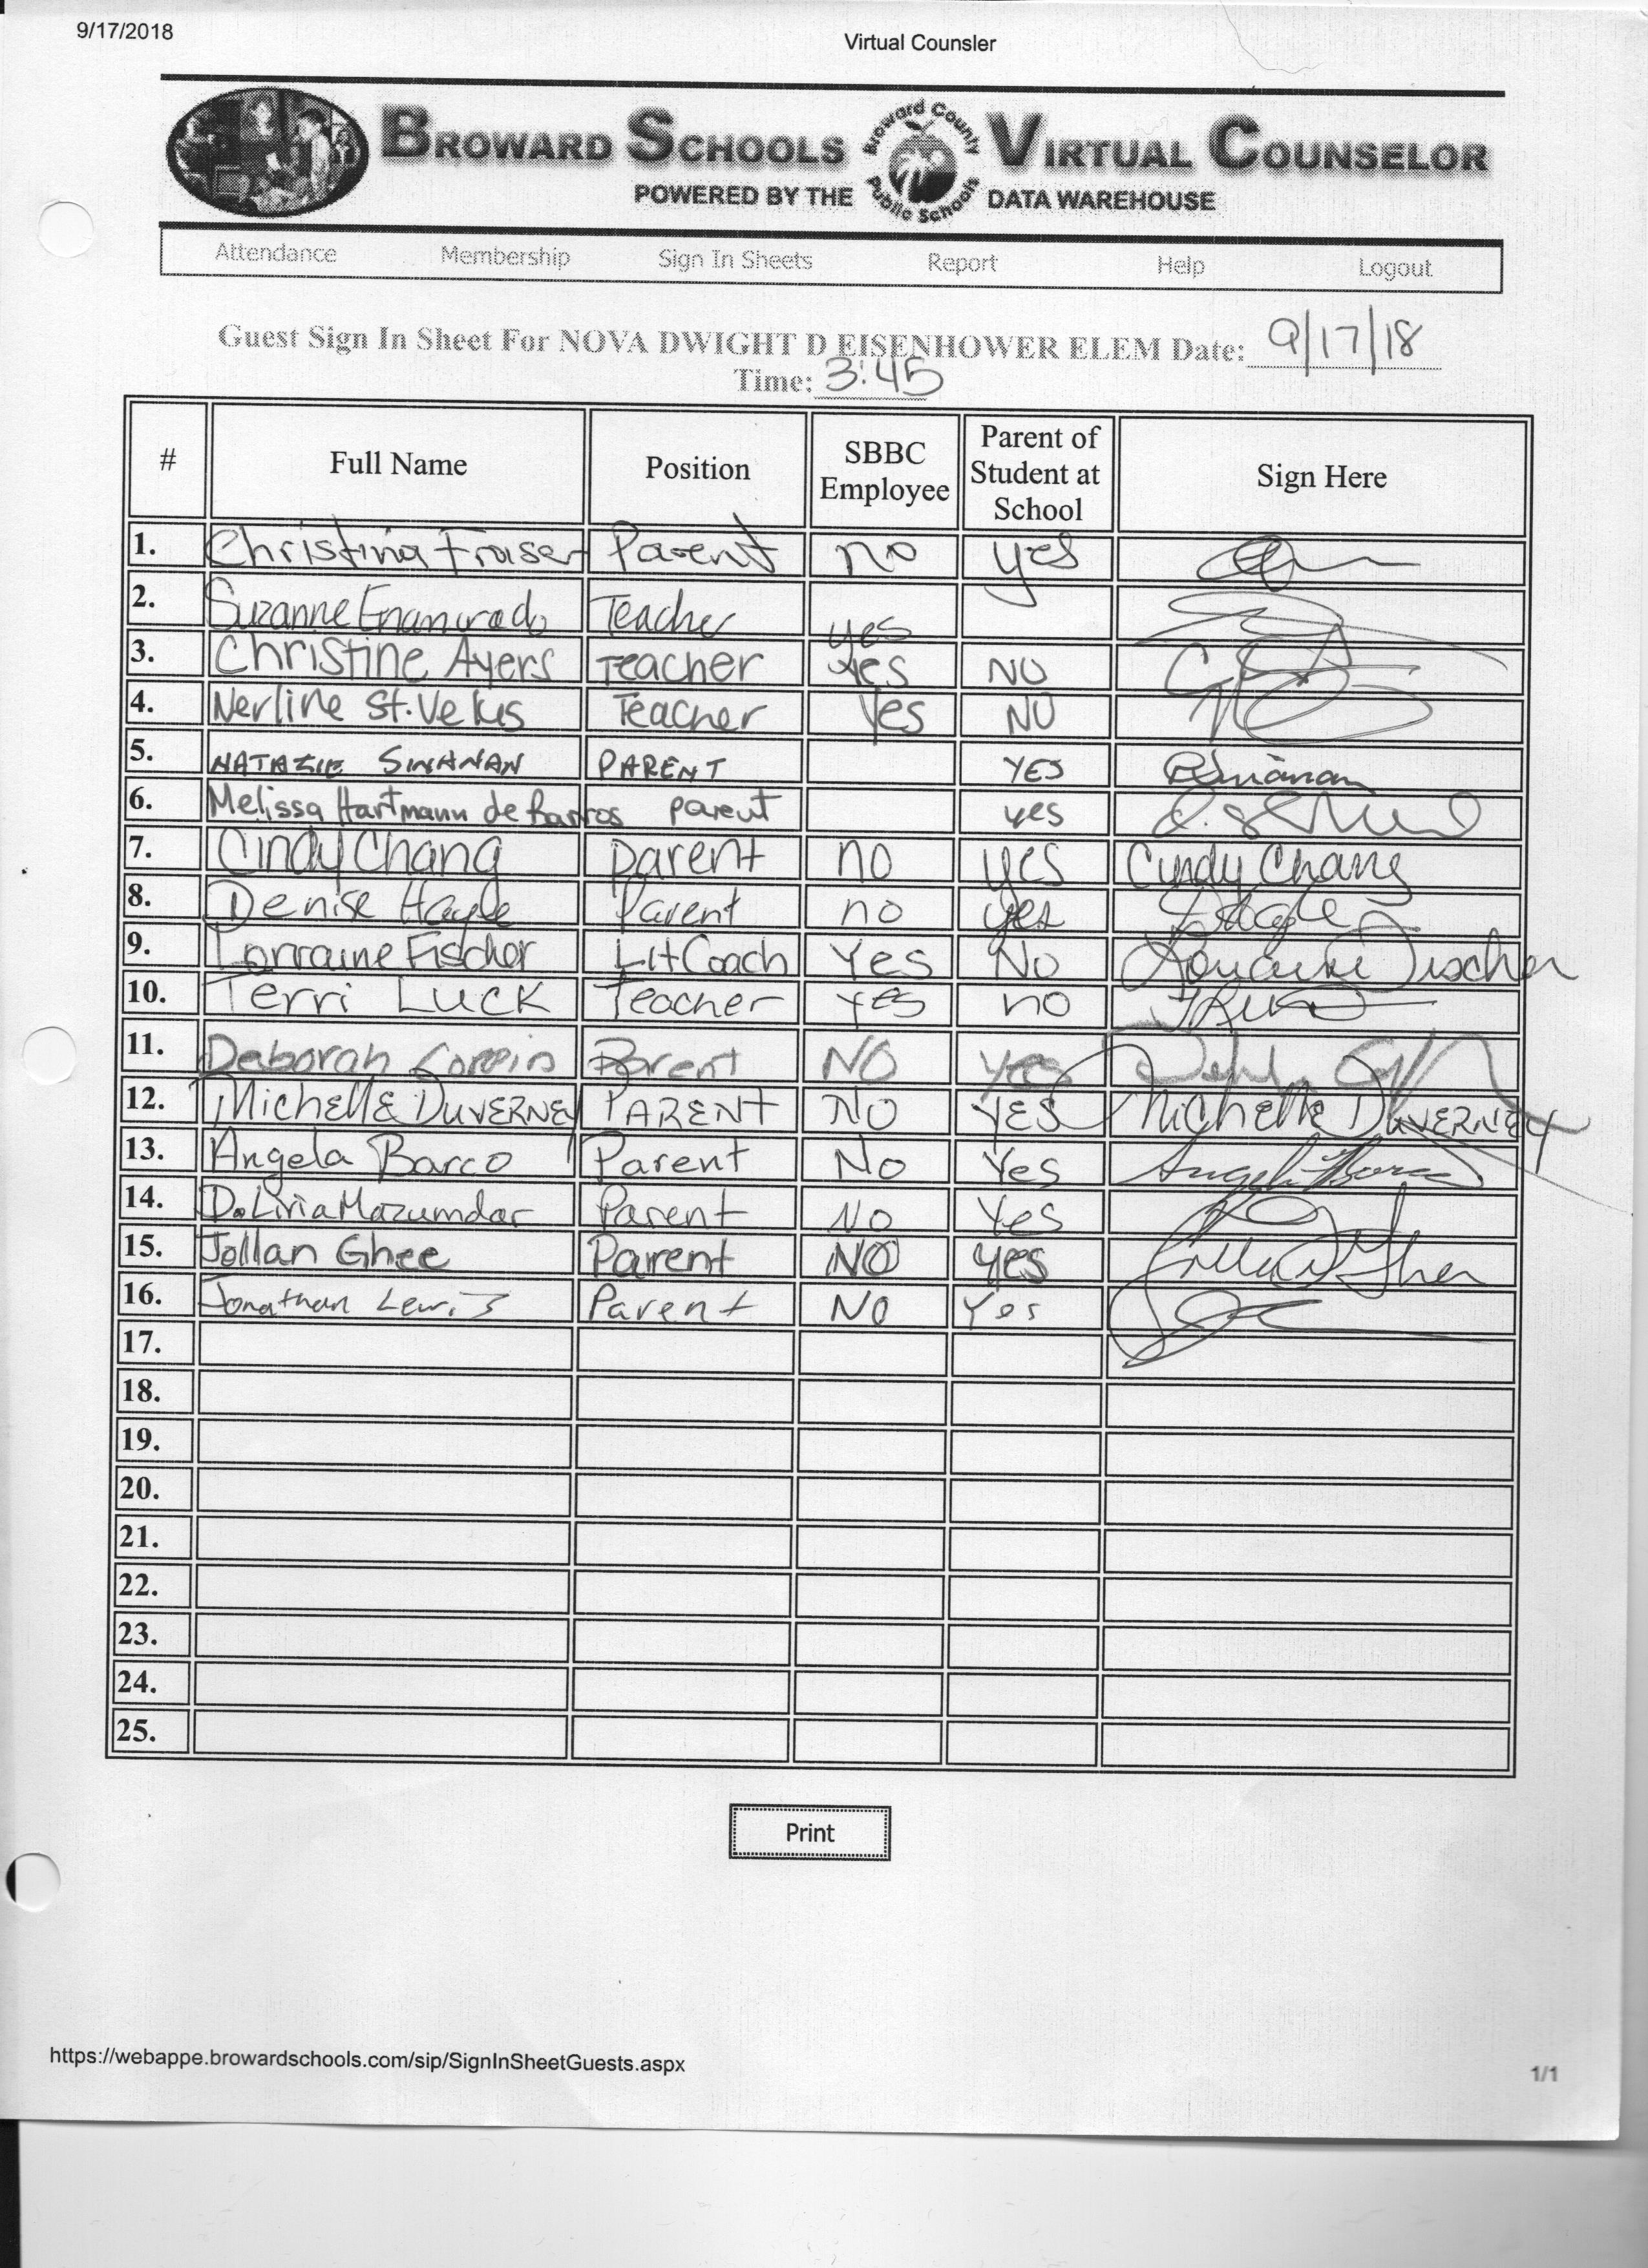 9/17/2018 Virtual Counsler
BROWARD SCHOOLS VIRTUAL COUNSELOR
Broward County Public Schools
POWERED BY THE DATA WAREHOUSE
Attendance Membership Sign In Sheets Report Help Logout
Guest Sign In Sheet For NOVA DWIGHT D EISENHOWER ELEM Date: 9/17/18
Time: 3:45
# Full Name Position SBBC Employee Parent of Student at School Sign Here
1. Christina Fraser Parent no yes
2. Suzanne Enamorado Teacher yes
3. Christine Ayers Teacher yes NO
4. Nerline St. Velus Teacher Yes NO
5. NATALIE SINANAN PARENT YES
6. Melissa Hartmann de Barros parent yes
7. Cindy Chang parent no yes Cindy Chang
8. Denise Hayle Parent no yes
9. Lorraine Fischer Lit Coach Yes No Lorraine Fischer
10. Terri Luck Teacher yes no
11. Deborah Parent NO yes
12. MichellE DUVERNEY PARENT No YES MichellE DUVERNEY
13. Angela Barco Parent No Yes Angela Barco
14. D. Livia Mazumdar Parent No Yes
15. Jollan Ghee Parent NO yes
16. Jonathan Lewis Parent NO Yes
17.
18.
19.
20.
21.
22.
23.
24.
25.
Print
https://webappe.browardschools.com/sip/SignInSheetGuests.aspx 1/1